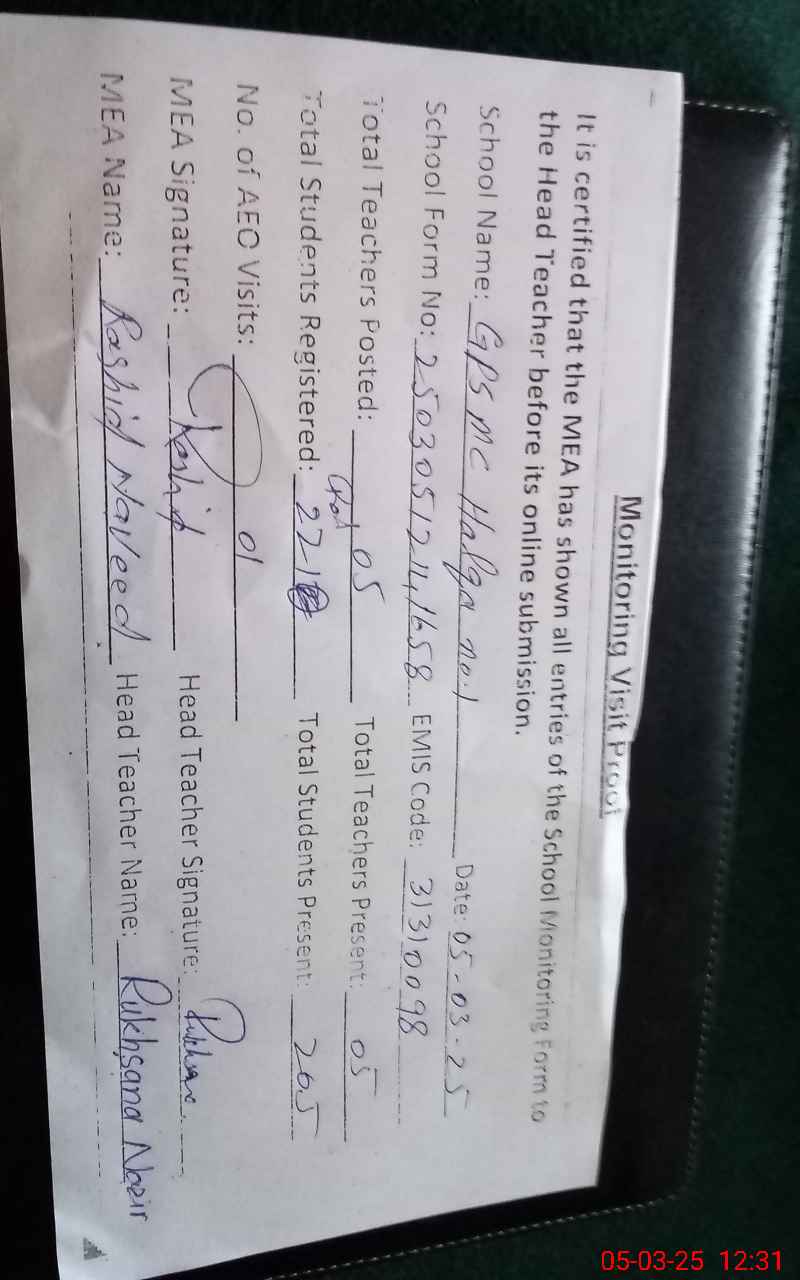 Monitoring Visit Proof
It is certified that the MEA has shown all entries of the School Monitoring Form to
the Head Teacher before its online submission.
School Name: GPS MC Halqa no.1 Date: 05-03-25
School Form No: EMIS Code: 31310098
Total Teachers Posted: 05 Total Teachers Present: 05
Total Students Registered: 271 Total Students Present: 265
No. of AEO Visits: 01
MEA Signature: Rashid Head Teacher Signature:
MEA Name: Rashid Naveed Head Teacher Name: Rukhsana Nazir
05-03-25 12:31